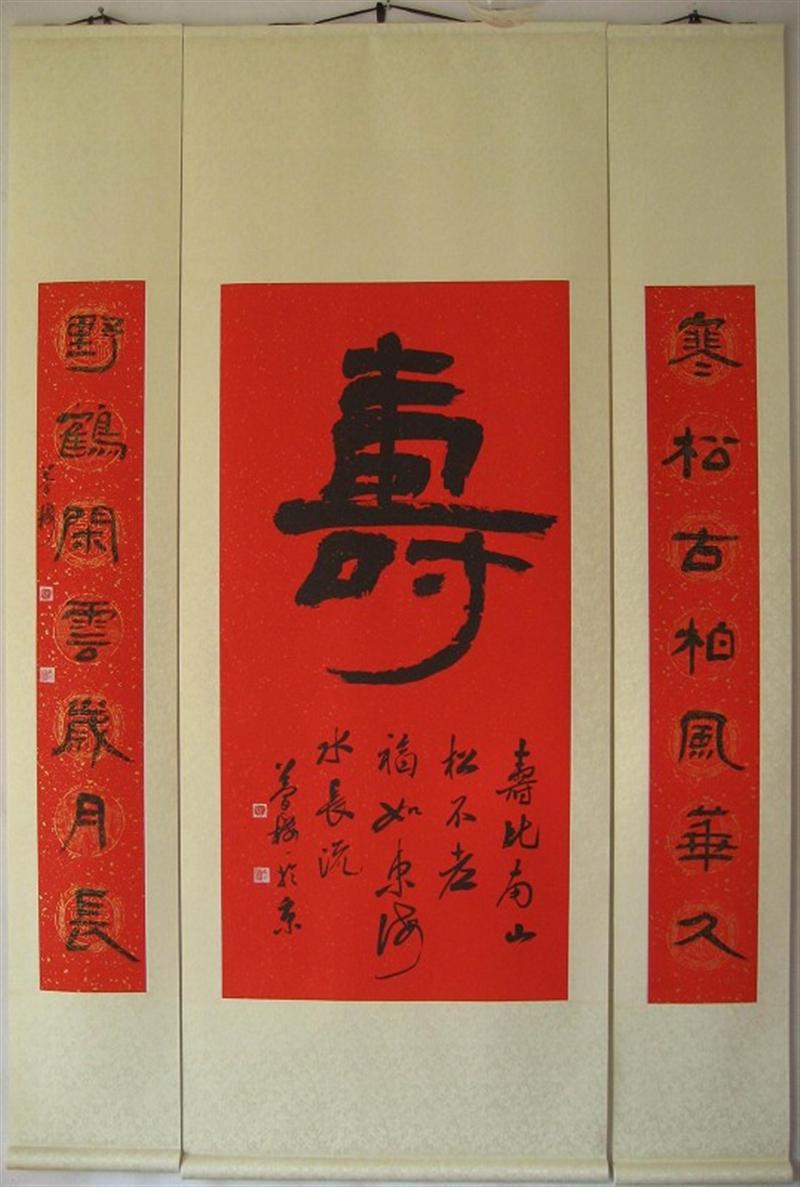 寒松古柏風華久
壽
壽比南山
松不老
福如東海
水長流
於京
野鶴閑雲歲月長